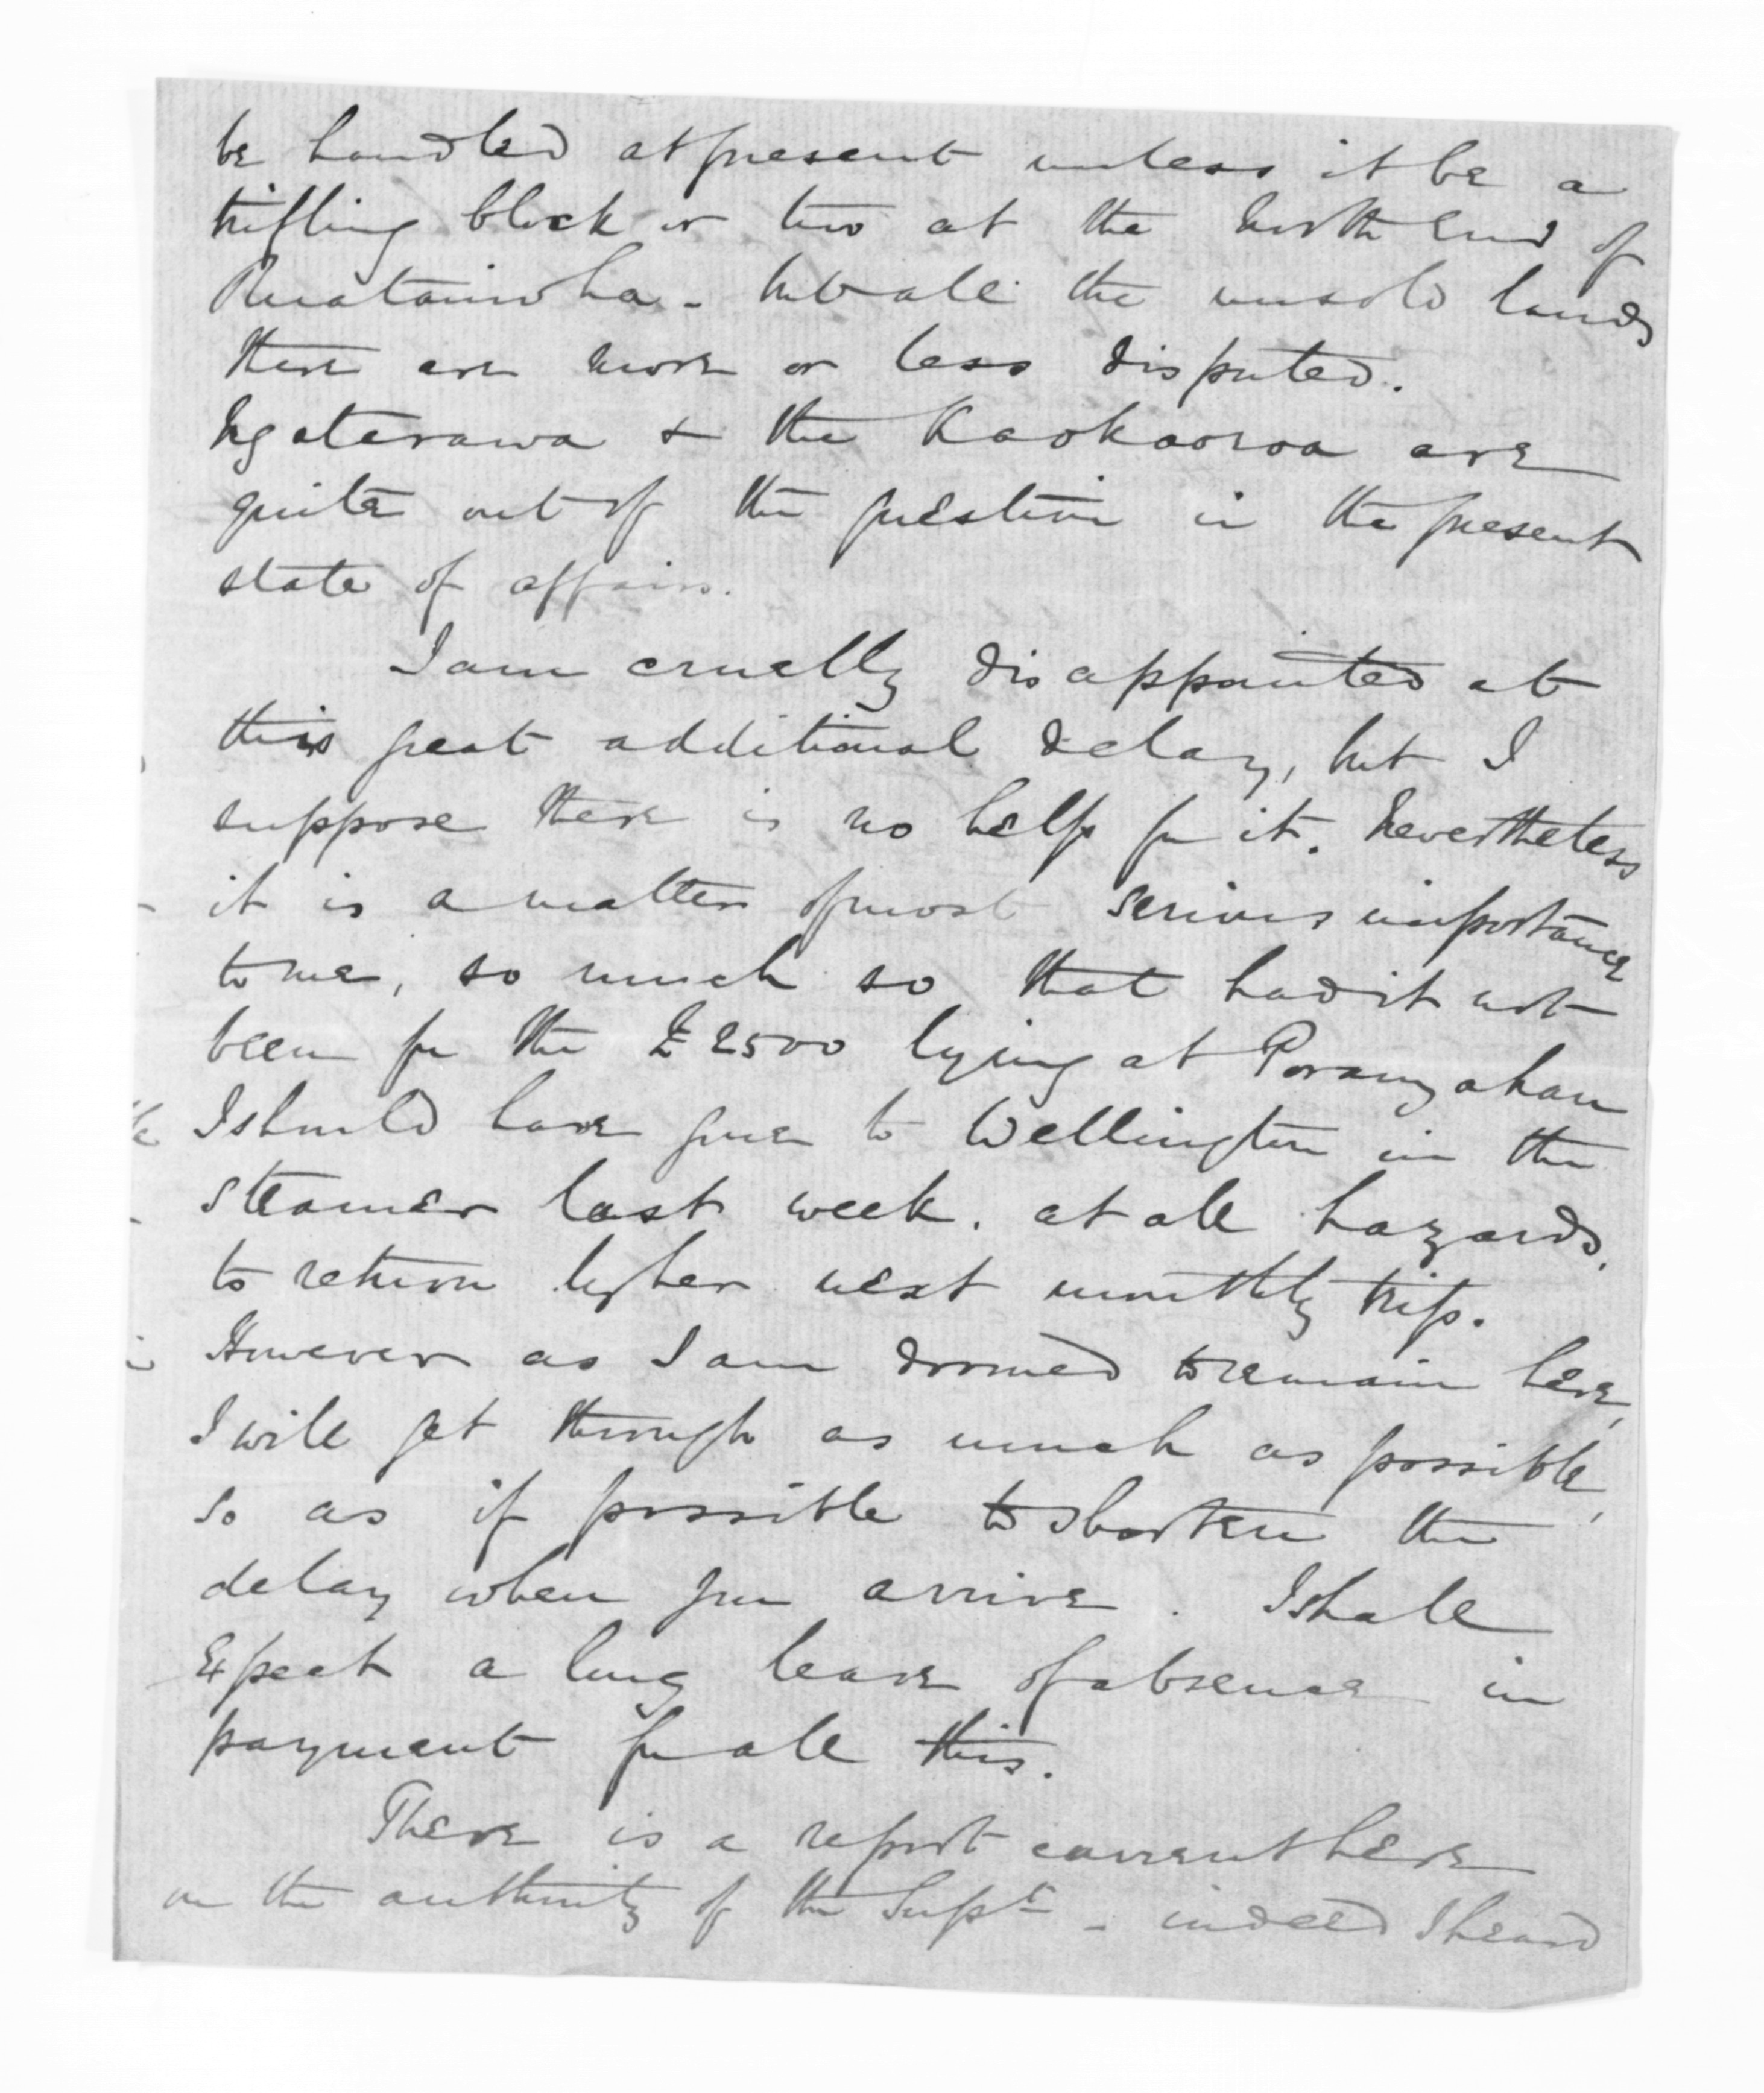 be handled at present unless it be a
trifling block or two at the north end of
Ruataniwha - but all the unsold lands
there are more or less disputed.
Ngatarawa & the Kaokaoroa are
quite out of the question in the present
state of affairs.
I am cruelly disappointed at
this great additional delay, but I
suppose there is no help for it. Nevertheless
it is a matter of most serious importance
to me, so much so that had it not
been for the £2500 lying at Porangahau
I should have gone to Wellington in the
steamer last week. at all hazards,
to return by her next monthly trip.
However as I am doomed to remain here,
I will get through as much as possible,
so as if possible to shorten the
delay when you arrive. I shall
expect a long leave of absence in
payment for all this.
There is a report current here
on the authority of the Supt - indeed I heard